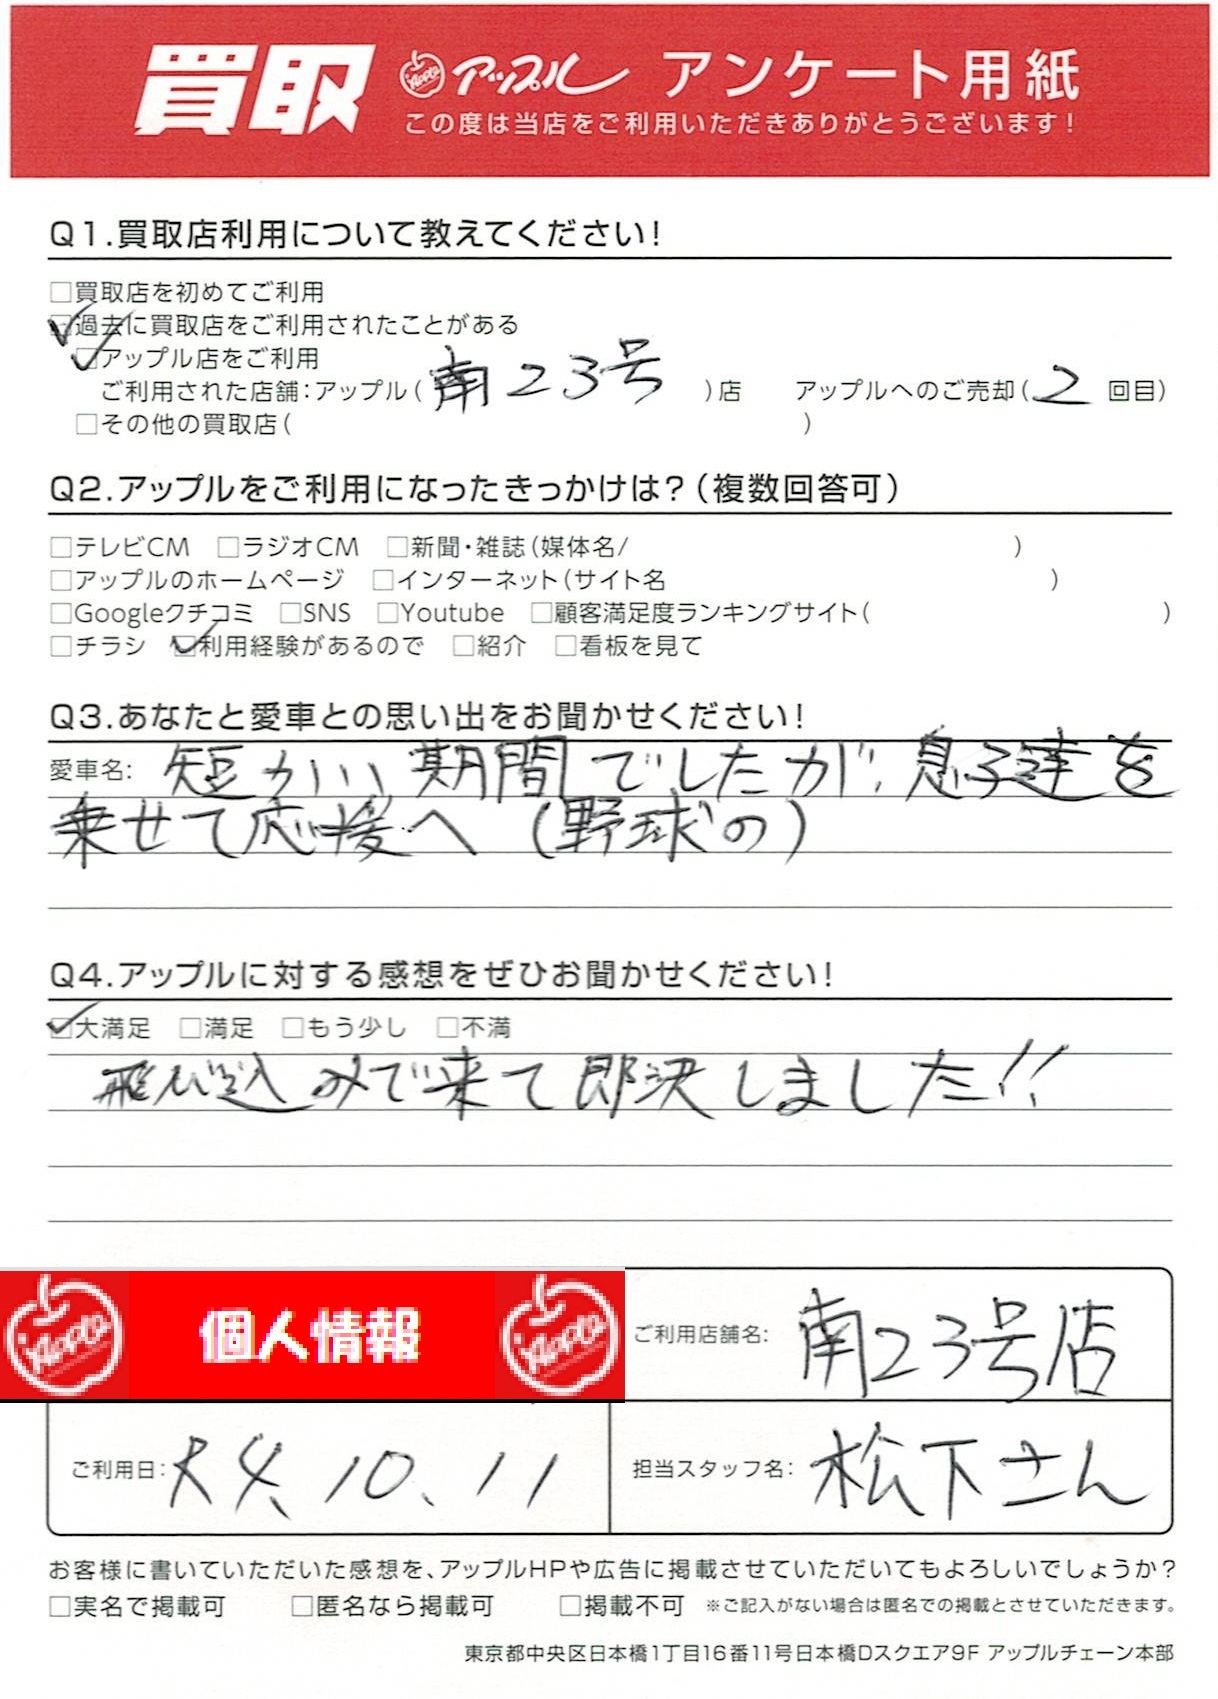 買取 Apple アップル アンケート用紙
この度は当店をご利用いただきありがとうございます！
Q1.買取店利用について教えてください！
□買取店を初めてご利用
☑過去に買取店をご利用されたことがある
☑アップル店をご利用
ご利用された店舗：アップル（南23号）店 アップルへのご売却（2回目）
□その他の買取店（ ）
Q2.アップルをご利用になったきっかけは？（複数回答可）
□テレビCM □ラジオCM □新聞・雑誌（媒体名/ ）
□アップルのホームページ □インターネット（サイト名 ）
□Googleクチコミ □SNS □Youtube □顧客満足度ランキングサイト（ ）
□チラシ ☑利用経験があるので □紹介 □看板を見て
Q3.あなたと愛車との思い出をお聞かせください！
愛車名： 短かい期間でしたが、息子達を
乗せて応援へ（野球の）
Q4.アップルに対する感想をぜひお聞かせください！
☑大満足 □満足 □もう少し □不満
飛び込みで来て即決しました!!
Apple 個人情報 Apple
ご利用店舗名： 南23号店
ご利用日： 4、10、11
担当スタッフ名： 松下さん
お客様に書いていただいた感想を、アップルHPや広告に掲載させていただいてもよろしいでしょうか？
□実名で掲載可 □匿名なら掲載可 □掲載不可 ※ご記入がない場合は匿名での掲載とさせていただきます。
東京都中央区日本橋1丁目16番11号日本橋Dスクエア9F アップルチェーン本部